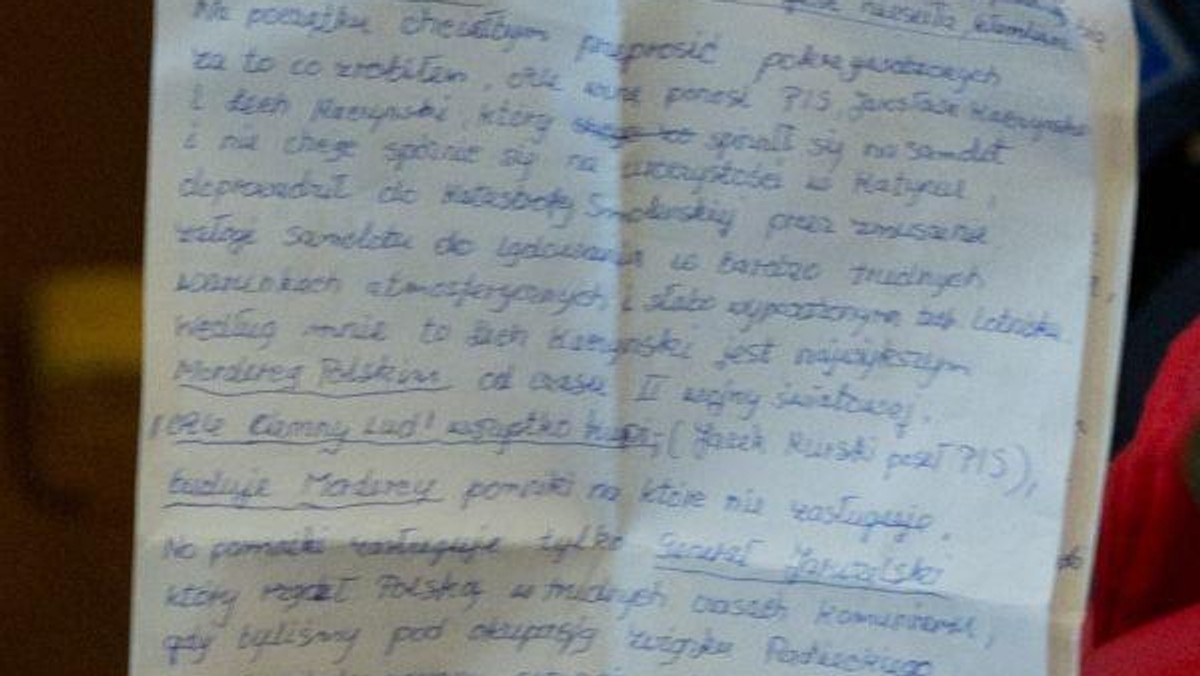 gdzie niesiła kłamliwa
Na początku chciałbym przeprosić pokrzywdzonych
za to co zrobiłem, ale winę ponosi PIS, Jarosław Kaczyński
i Lech Kaczyński, który spóźnił się na samolot
i nie chcąc spóźnić się na uroczystości w Katyniu,
doprowadził do Katastrofy Smoleńskiej przez zmuszenie
załogi samolotu do lądowania w bardzo trudnych
warunkach atmosferycznych i słabo wyposażonym lotnisku.
Według mnie to Lech Kaczyński jest największym
Mordercą Polskim od czasu II wojny światowej.
Ciemny Lud! wszystko kupi; (Jacek Kurski poseł PIS),
buduje Mordercy pomniki na które nie zasługuje.
Na pomniki zasługuje tylko Generał Jaruzelski
który rządził Polską w trudnych czasach komunizmu,
gdy byliśmy pod okupacją związku Radzieckiego